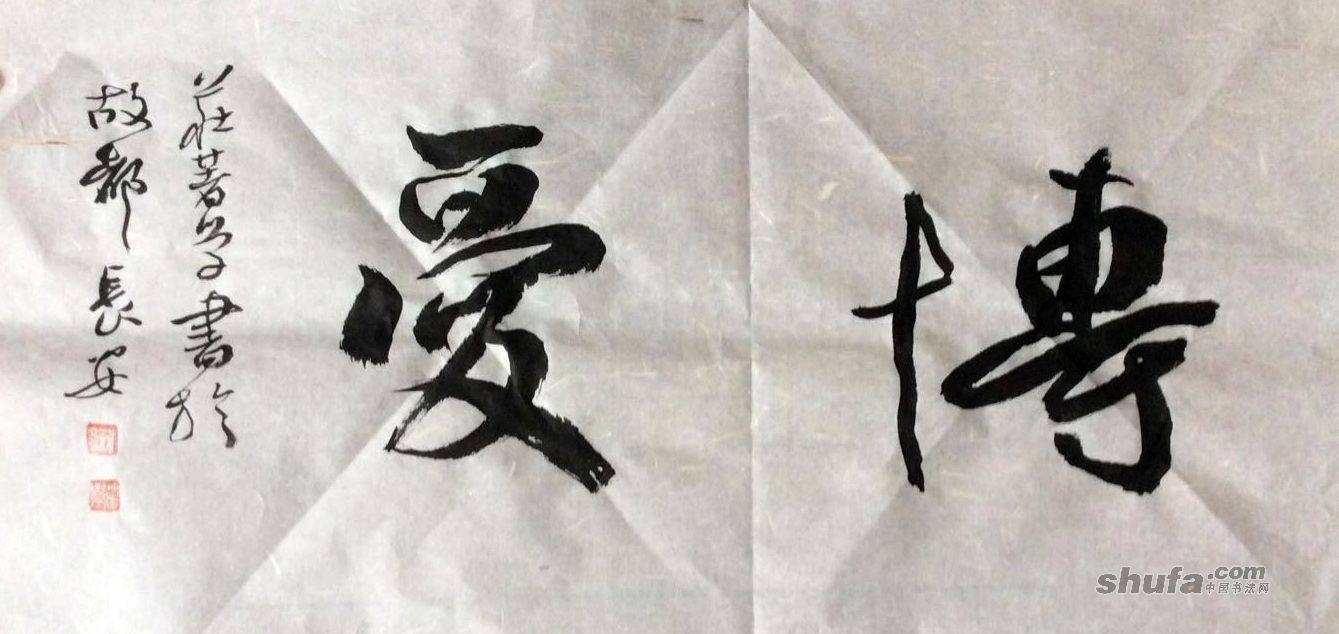 博愛
莊著学書於
故都長安
shufa.com
中国书法网